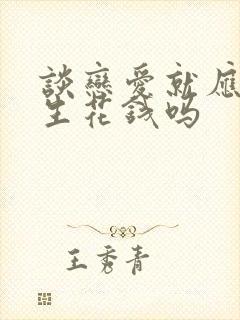 談戀愛就應
生花錢嗎
王秀青